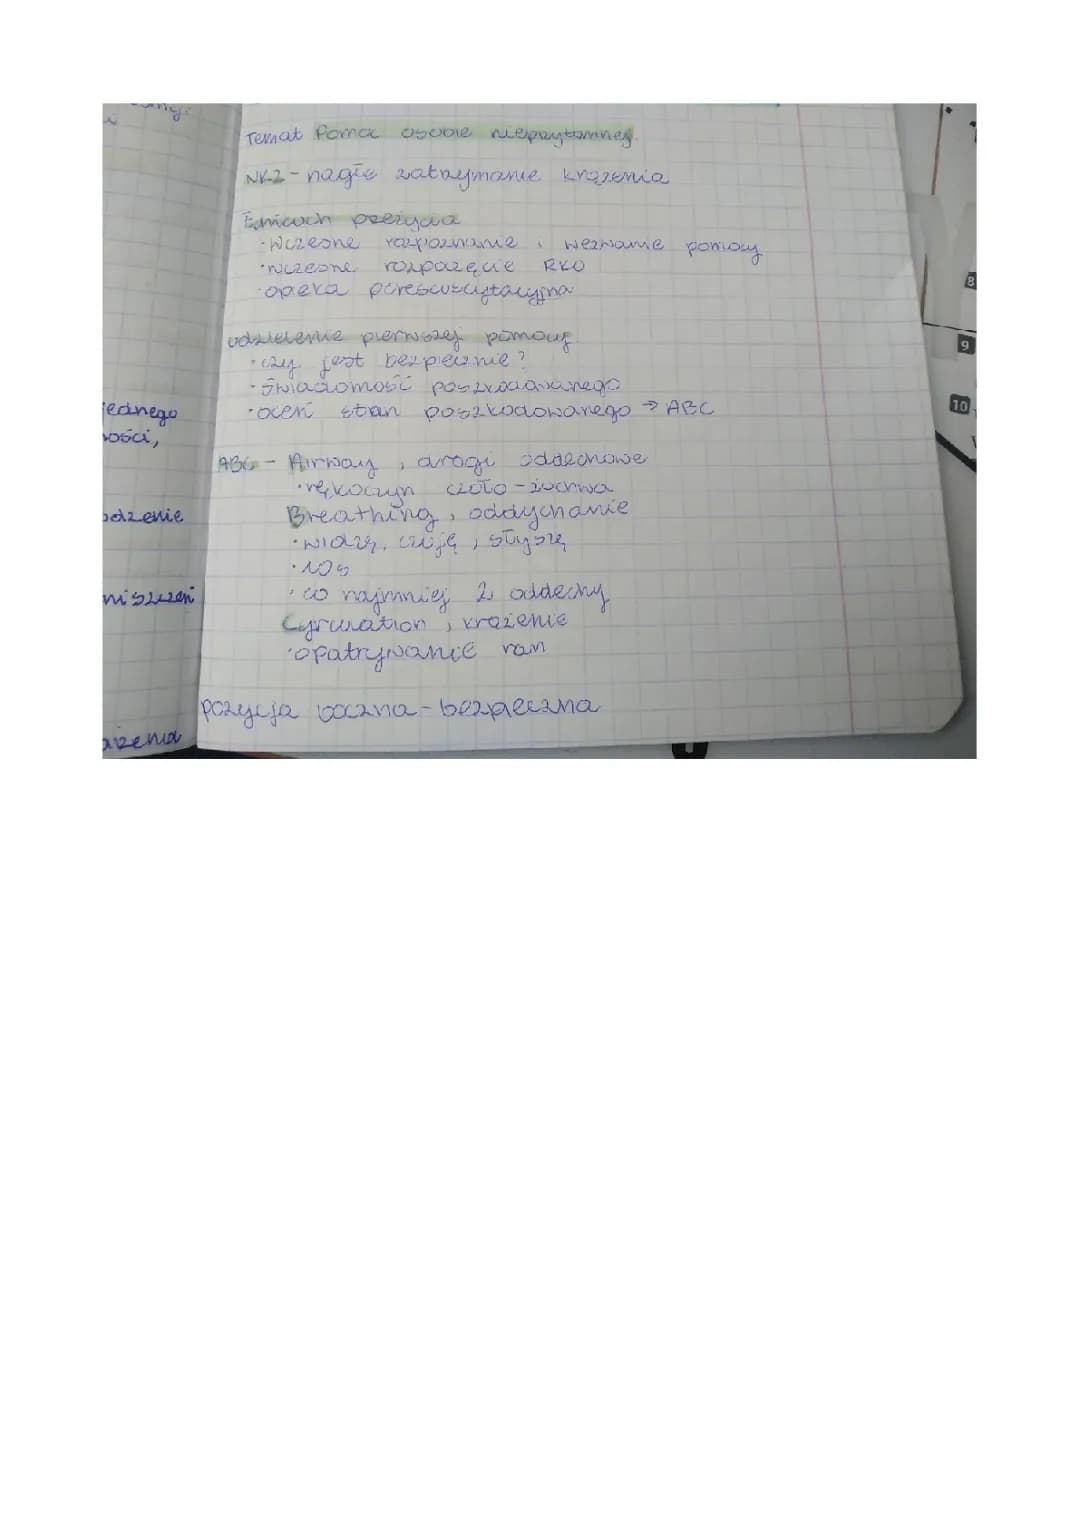 Temat Pomoc osobie nieprzytomnej.
NKZ - nagłe zatrzymanie krążenia
Łańcuch przeżycia
· Wczesne rozpoznanie i wezwanie pomocy
· wczesne rozpoczęcie RKO
· opieka poresuscytacyjna
udzielenie pierwszej pomocy
· czy jest bezpiecznie?
· Świadomość poszkodowanego
· oceń stan poszkodowanego → ABC
ABC - Airway, drogi oddechowe
· rękoczyn czoło-żuchwa
Breathing, oddychanie
· widzę, czuję, słyszę
· 10s
· co najmniej 2 oddechy
Cyrculation, krążenie
· opatrywanie ran
pozycja boczna - bezpieczna
jednego
ności,
odzenie
niszczeń
ażenia
8
9
10